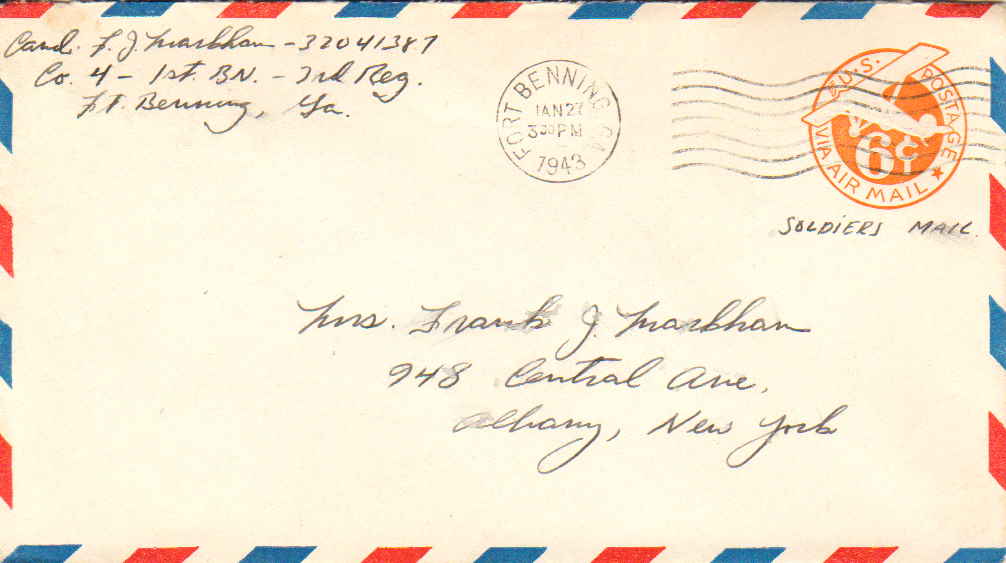 Cand. F. J. Markham - 32041387
Co. 4 - 1st. BN. - 3rd Reg.
Ft. Benning, Ga.
FORT BENNING GA.
JAN 27
3 30 PM
1943
U.S. POSTAGE
6¢
VIA AIR MAIL
SOLDIERS MAIL.
Mrs. Frank J. Markham
948 Central Ave.
Albany, New York